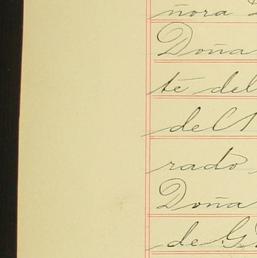 ñora
Doña
te del
del
rado
Doña
de G